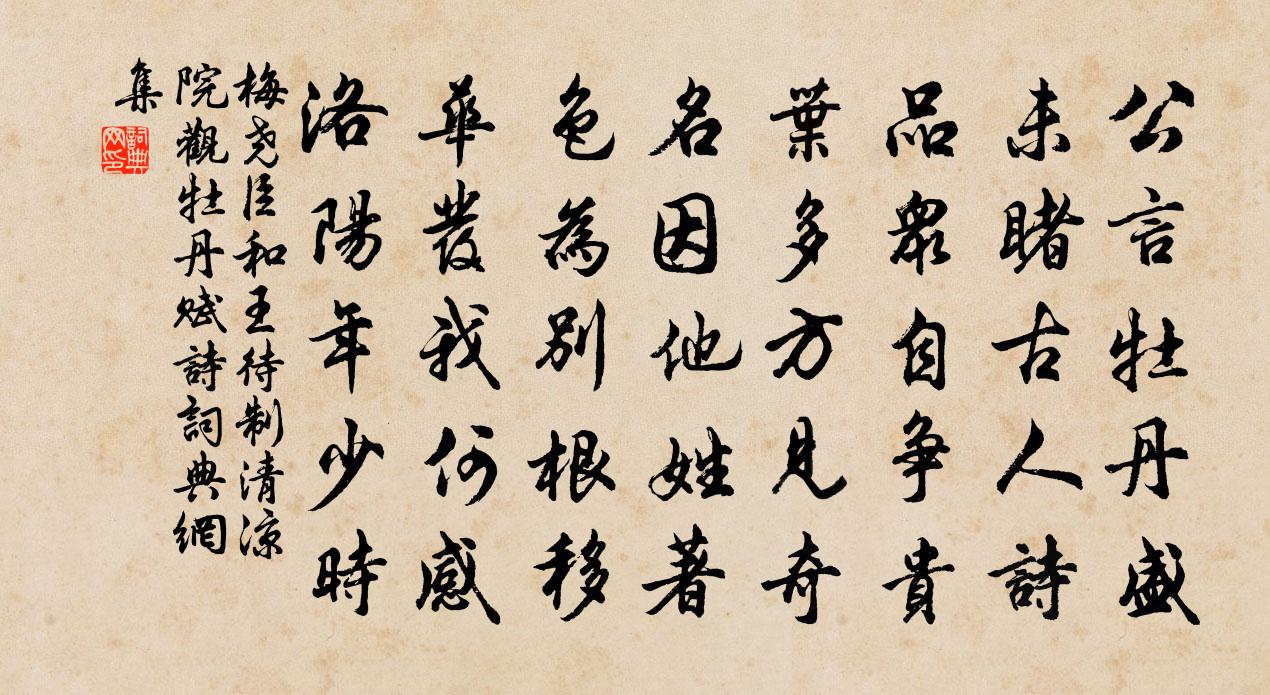 公言牡丹盛
未睹古人詩
品眾自争貴
葉多方見奇
名因他姓著
色為別根移
華發我何感
洛陽年少時
梅尧臣和王待制清涼
院觀牡丹赋詩詞典網
集
詞典
网印